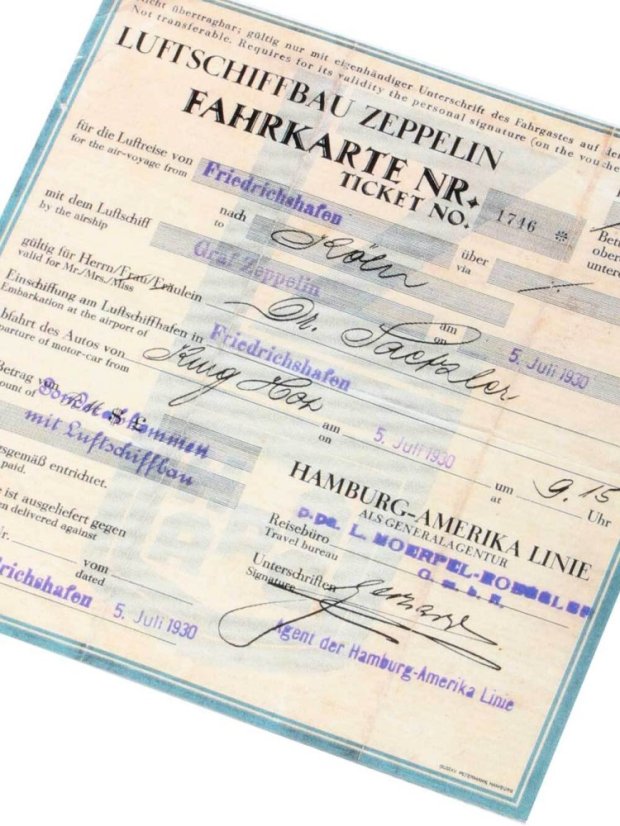 Nicht übertragbar; gültig nur mit eigenhändiger Unterschrift des Fahrgastes auf de
Not transferable. Requires for its validity the personal signature (on the vouche
LUFTSCHIFFBAU ZEPPELIN
FAHRKARTE NR.
TICKET NO. 1746 *
für die Luftreise von Friedrichshafen nach Köln über
for the air-voyage from to via
mit dem Luftschiff Graf Zeppelin am 5. Juli 1930
by the airship on
gültig für Herrn/Frau/Fräulein Dr.
valid for Mr./Mrs./Miss
Einschiffung am Luftschiffhafen in Friedrichshafen am 5. Juli 1930 um 9.15 Uhr
Embarkation at the airport of on at
bfahrt des Autos von
parture of motor-car from
Betrag von
ount of
mit Luftschiffbau
sgemäß entrichtet.
paid.
e ist ausgeliefert gegen
en delivered against
Nr. vom
dated
drichshafen 5. Juli 1930
HAMBURG-AMERIKA LINIE
ALS GENERALAGENTUR
Reisebüro
Travel bureau
G. m. b. H.
Unterschriften
Signature
Agent der Hamburg-Amerika Linie